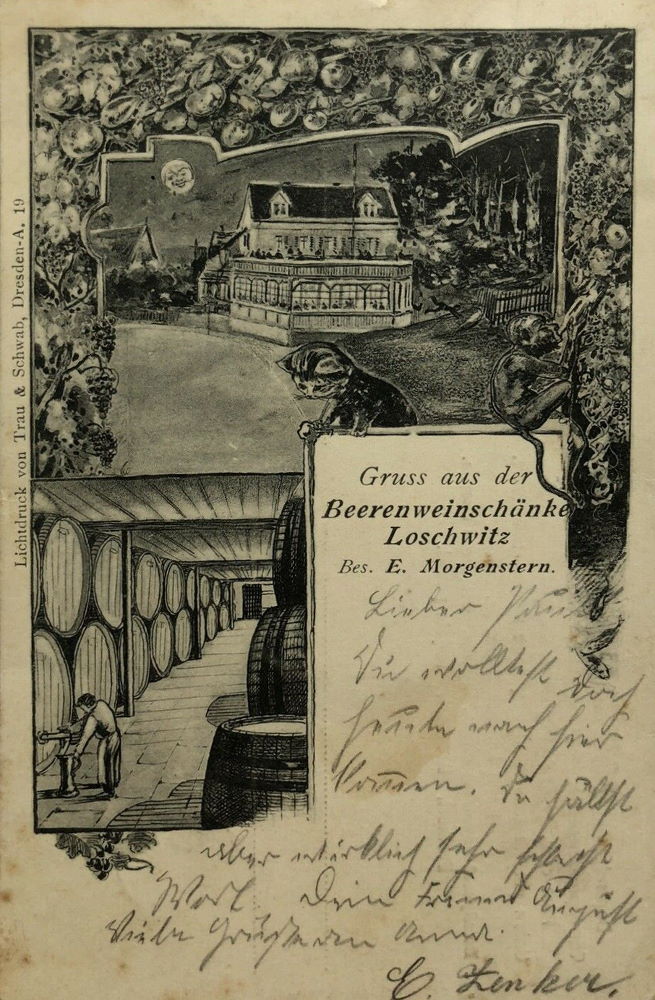 Lichtdruck von Trau & Schwab, Dresden-A. 19
Gruss aus der
Beerenweinschänke
Loschwitz
Bes. E. Morgenstern.
Lieber Paul
Du wolltest doch
heute nach hier
kommen. Du hältst
aber wirklich sehr schlecht
Wort. Dein Freund August
Viele Grüße an Anna.
E. Zenker.